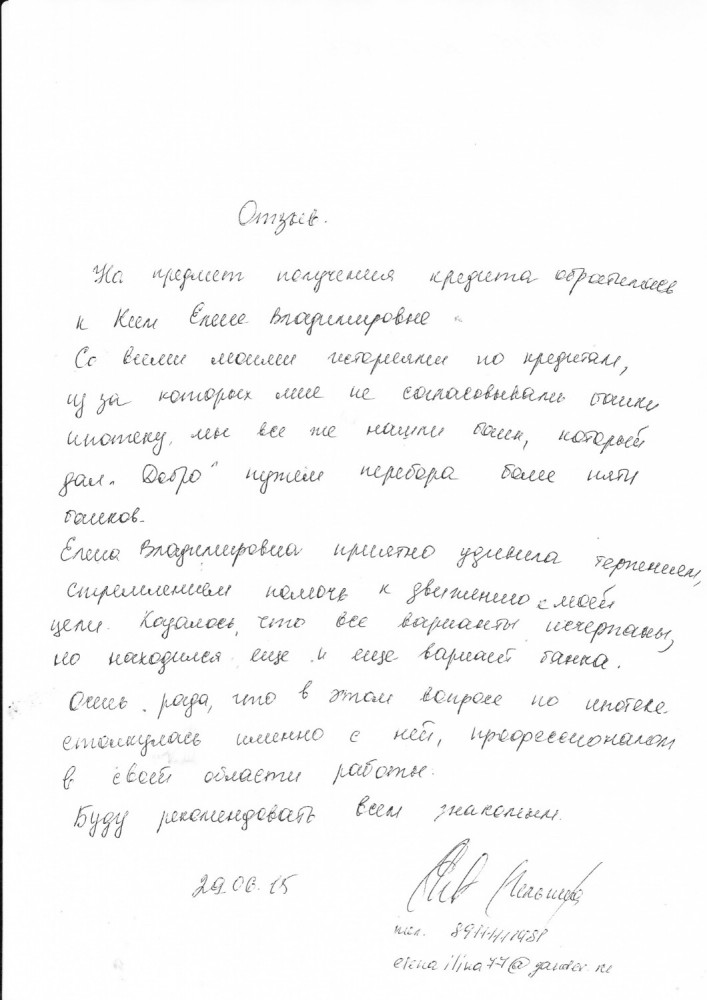 Отзыв.
На предмет получения кредита обратилась
к Ким Елене Владимировне
Со всеми моими историями по кредитам,
из за которых мне не согласовывали банки
ипотеку, мы все же нашли банк, который
дал „Добро" путем перебора более пяти
банков.
Елена Владимировна приятно удивила терпением,
стремлением помочь к движению к моей
цели. Казалось, что все варианты исчерпаны,
но находился еще и еще вариант банка.
Очень рада, что в этом вопросе по ипотеке
столкнулась именно с ней, профессионалом
в своей области работы.
Буду рекомендовать всем знакомым.
29.06.15
тел.